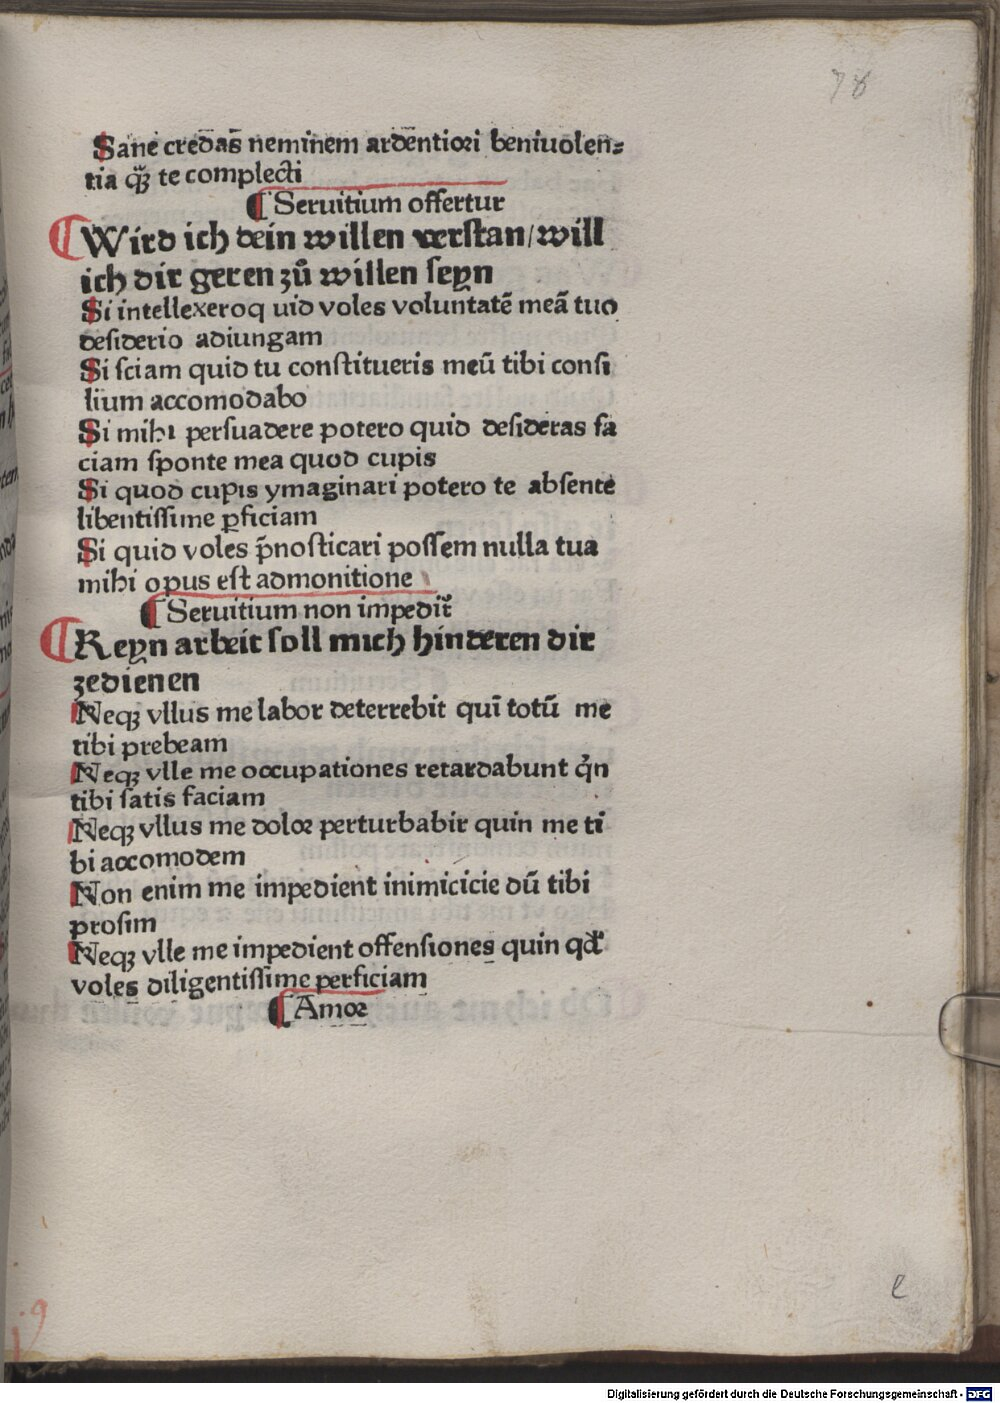 78
Sane credas̄ neminem ardentiori beniuolen⸗
tia q̃ꝫ te complecti
¶ Seruitium offertur
¶ Wird ich dein willen verstan/will
ich dir geren zů willen seyn
Si intellexeroq uid voles voluntatē meā tuo
desiderio adiungam
Si sciam quid tu constitueris meū tibi consi
lium accomodabo
Si mihi persuadere potero quid desideras fa
ciam sponte mea quod cupis
Si quod cupis ymaginari potero te absente
libentissime ꝑficiam
Si quid voles p̄nosticari possem nulla tua
mihi opus est admonitione
¶ Seruitium non impedit̄
¶ Keyn arbeit soll mich hinderen dir
zedienen
Neqꝫ vllus me labor deterrebit quī totū me
tibi prebeam
Neqꝫ vlle me occupationes retardabunt q̇n
tibi satis faciam
Neqꝫ vllus me dolor perturbabit quin me ti
bi accomodem
Non enim me impedient inimicicie dū tibi
prosim
Neqꝫ vlle me impedient offensiones quin qd̓
voles diligentissime perficiam
¶ Amor
Digitalisierung gefördert durch die Deutsche Forschungsgemeinschaft - DFG